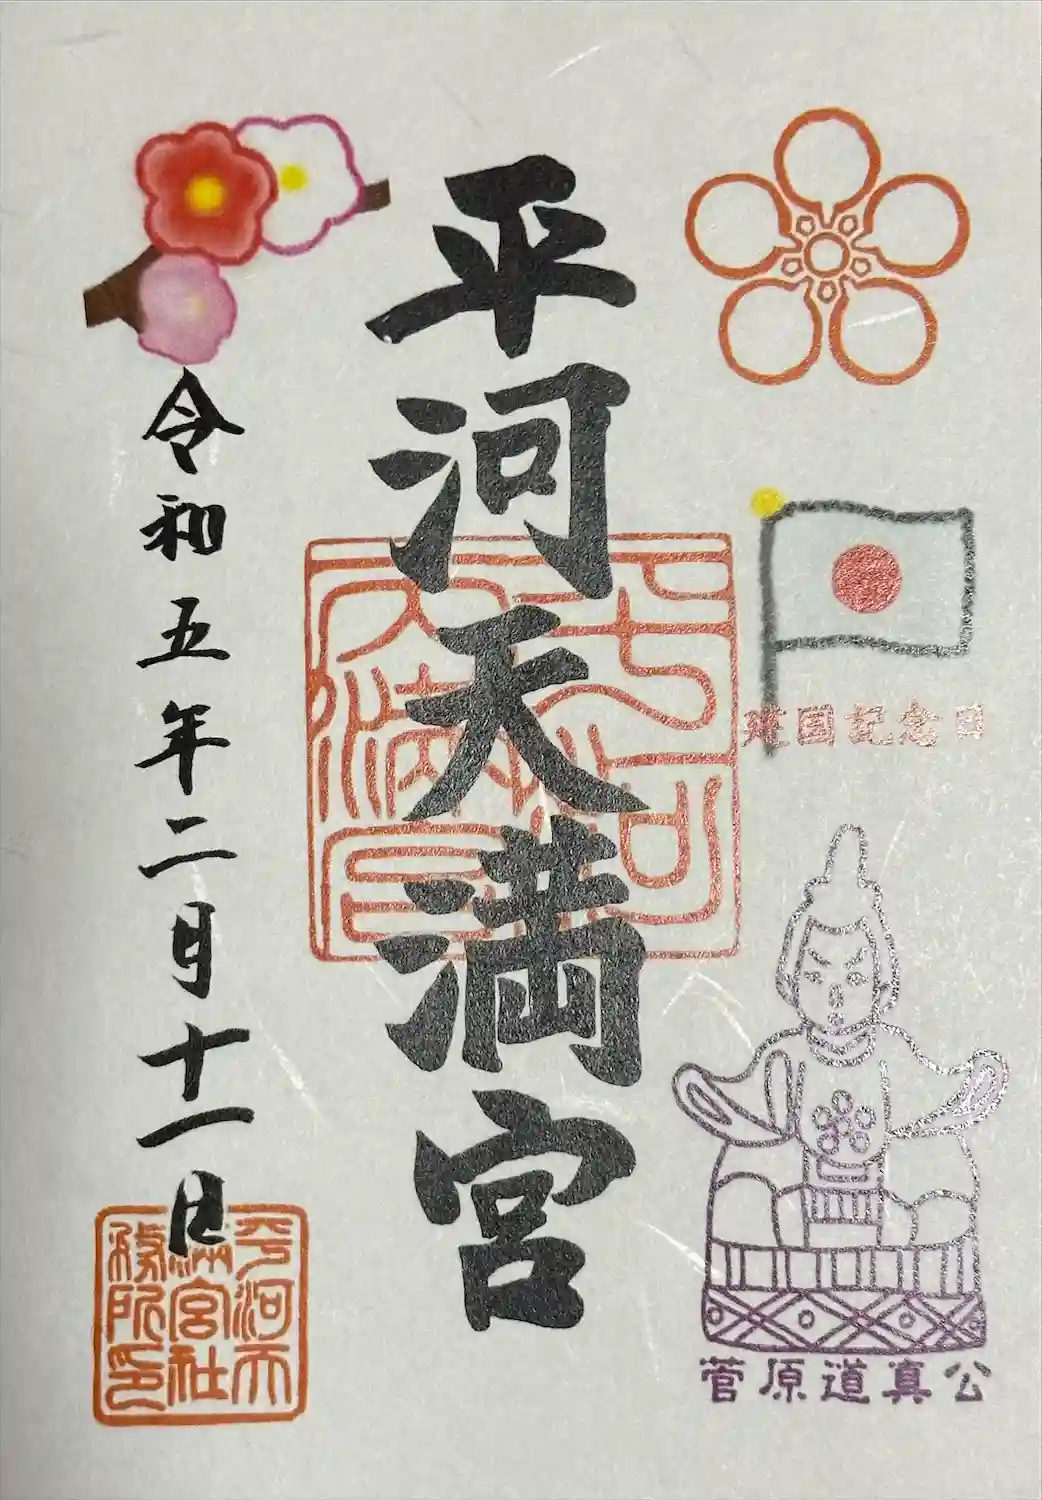 建国記念日
菅原道真公
平河天満宮
令和五年二月十一日
平河天
満宮社
務所印